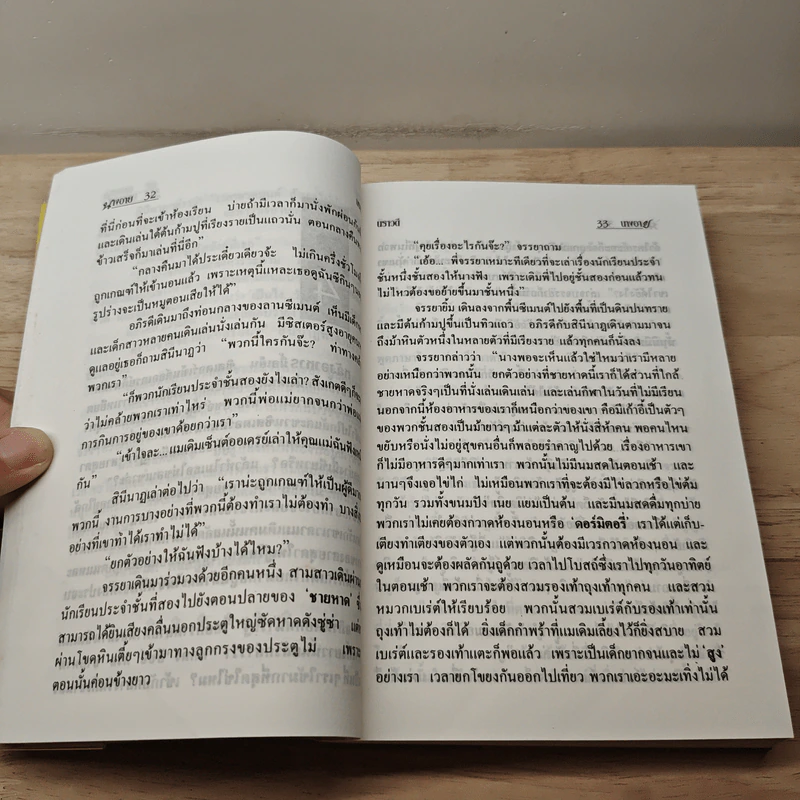 32
ที่นี่ก่อนที่จะเข้าห้องเรียน บ่ายถ้ามีเวลาก็มานั่งพักผ่อนกัน
และเดินเล่นใต้ต้นก้ามปูที่เรียงรายเป็นแถวนั่น ตอนกลางคืน
ข้าวเสร็จก็มาเล่นที่นี่อีก”
“กลางคืนมาได้ประเดี๋ยวเดียวจ้ะ ไม่เกินครึ่งชั่วโมง
ถูกเกณฑ์ให้เข้านอนแล้ว เพราะเหตุนี้แหละเธอดูฉันซีกินๆ
รูปร่างจะเป็นหมูตอนเสียให้ได้”
อภิรดีเดินมาถึงท่อนกลางของลานซีเมนต์ เห็นมีเด็ก
และเด็กสาวหลายคนเดินเล่นนั่งเล่นกัน มีซิสเตอร์สูงอายุ
ดูแลอยู่เธอก็ถามสินีนาฏว่า “พวกนี้ใครกันจ๊ะ? ท่าทาง
พวกเรา”
“ก็พวกนักเรียนประจำชั้นสองยังไงเล่า? สังเกตดีๆก็จะ
ว่าไม่คล้ายพวกเราเท่าไหร่ พวกนี้พ่อแม่ยากจนกว่าพ่อแม่
การกินการอยู่ของเขาด้อยกว่าเรา”
“เข้าใจละ...แมเดิมเซ็นต์ออเดรย์เล่าให้คุณแม่ฉันฟัง
กัน”
สินีนาฏเล่าต่อไปว่า “เราน่ะถูกเกณฑ์ให้เป็นผู้ดีมา
พวกนี้ งานการบางอย่างที่พวกนี้ต้องทำเราไม่ต้องทำ บางสิ่ง
อย่างที่เขาทำได้เราทำไม่ได้”
“ยกตัวอย่างให้ฉันฟังบ้างได้ไหม?”
จรรยาเดินมาร่วมวงด้วยอีกคนหนึ่ง สามสาวเดินผ่าน
นักเรียนประจำชั้นที่สองไปยังตอนปลายของ ‘ชายหาด’
สามารถได้ยินเสียงคลื่นนอกประตูใหญ่ซัดหาดดังซู่ซ่า แต่
ผ่านโขดหินเตี้ยๆเข้ามาทางลูกกรงของประตูไม่ เพราะ
ตอนนั้นค่อนข้างยาว
นราวดี 33 นางอาย
“คุยเรื่องอะไรกันจ๊ะ?” จรรยาถาม
“เอ้อ... พี่จรรยาเหมาะทีเดียวที่จะเล่าเรื่องนักเรียนประจำ
ชั้นหนึ่งชั้นสองให้นางฟัง เพราะเดิมพี่ไปอยู่ชั้นสองก่อนแล้วทน
ไม่ไหวต้องขอย้ายขึ้นมาชั้นหนึ่ง”
จรรยายิ้ม เดินลงจากพื้นซีเมนต์ไปยังพื้นที่เป็นดินปนทราย
และมีต้นก้ามปูขึ้นเป็นทิวแถว อภิรดีกับสินีนาฏเดินตามมาจน
ถึงม้าหินตัวหนึ่งในหลายตัวที่มีเรียงราย แล้วทุกคนก็นั่งลง
จรรยากล่าวว่า “นางพอจะเห็นแล้วใช่ไหมว่าเรามีหลาย
อย่างเหนือกว่าพวกนั้น ยกตัวอย่างที่ชายหาดนี้เราก็ได้ส่วนที่ใกล้
ชายหาดจริงๆเป็นที่นั่งเล่นเดินเล่น และเล่นกีฬาในวันที่ไม่มีเรียน
นอกจากนี้ห้องอาหารของเราก็เหนือกว่าของเขา คือมีเก้าอี้เป็นตัวๆ
ของพวกชั้นสองเป็นม้ายาวๆ ม้าแต่ละตัวให้นั่งสี่ห้าคน พอคนไหน
ขยับหรือนั่งไม่อยู่สุขคนอื่นก็พลอยรำคาญไปด้วย เรื่องอาหารเขา
ก็ไม่มีอาหารดีๆมากเท่าเรา พวกนั้นไม่มีนมสดในตอนเช้า และ
นานๆจึงเจอไข่ไก่ ไม่เหมือนพวกเราที่จะต้องมีไข่ลวกหรือไข่ต้ม
ทุกวัน รวมทั้งขนมปัง เนย แยมเป็นต้น และมีนมสดดื่มทุกบ่าย
พวกเราไม่เคยต้องกวาดห้องนอนหรือ ‘ดอร์มิตอรี่’ เราได้แต่เก็บ-
เตียงทำเตียงของตัวเอง แต่พวกนั้นต้องมีเวรกวาดห้องนอน และ
ดูเหมือนจะต้องผลัดกันถูด้วย เวลาไปโบสถ์ซึ่งเราไปทุกวันอาทิตย์
ในตอนเช้า พวกเราจะต้องสวมรองเท้าถุงเท้าทุกคน และสวม
หมวกเบเร่ต์ให้เรียบร้อย พวกนั้นสวมเบเร่ต์กับรองเท้าเท่านั้น
ถุงเท้าไม่ต้องก็ได้ ยิ่งเด็กกำพร้าที่แมเดิมเลี้ยงไว้ก็ยิ่งสบาย สวม
เบเร่ต์และรองเท้าแตะก็พอแล้ว เพราะเป็นเด็กยากจนและไม่ ‘สูง’
อย่างเรา เวลายกโขยงกันออกไปเที่ยว พวกเราเอะอะมะเทิ่งไม่ได้